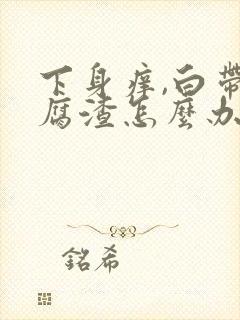 下身痒,白帶
腐渣怎麽办
銘希